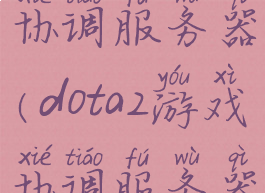 xié tiáo fú wù qì
协调服务器
yóu xì
(dota2游戏
xié tiáo fú wù qì
协调服务器